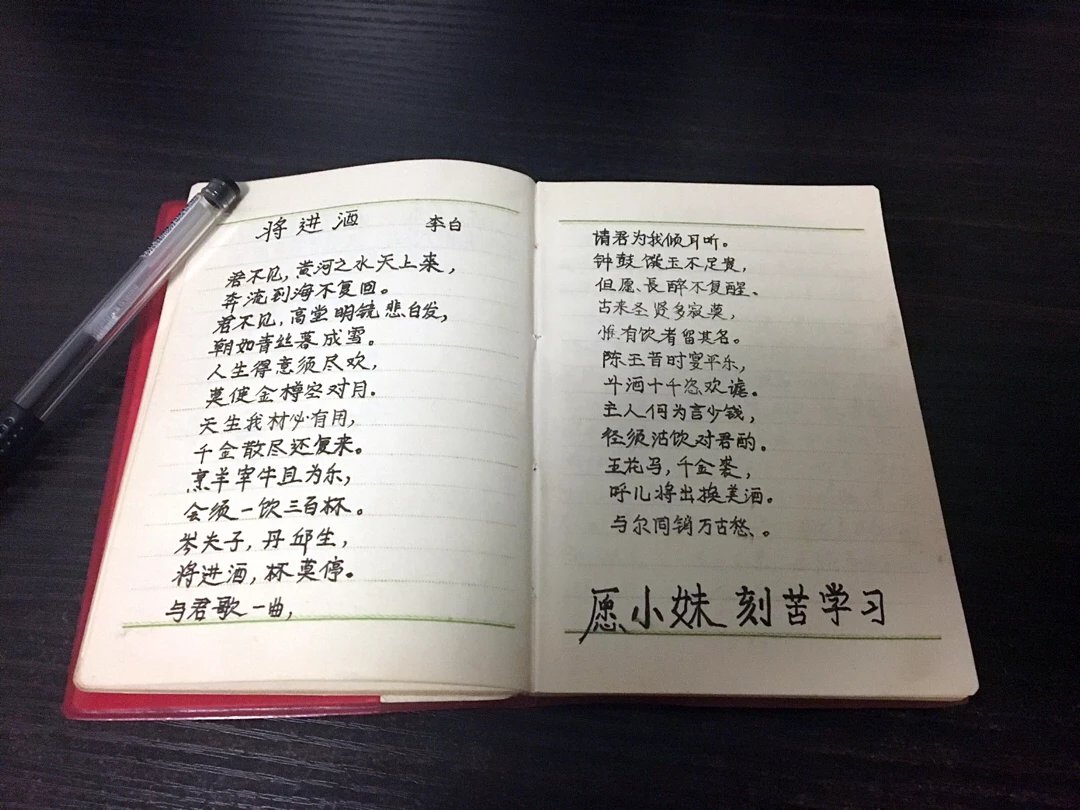 将进酒 李白
君不见,黄河之水天上来,
奔流到海不复回。
君不见,高堂明镜悲白发,
朝如青丝暮成雪。
人生得意须尽欢,
莫使金樽空对月.
天生我材必有用,
千金散尽还复来。
烹羊宰牛且为乐,
会须一饮三百杯。
岑夫子,丹邱生,
将进酒,杯莫停。
与君歌一曲,
请君为我倾耳听。
钟鼓馔玉不足贵,
但愿長醉不复醒、
古来圣贤多寂莫,
惟有饮者留其名。
陈王昔时宴平乐,
斗酒十千恣欢谑。
主人何为言少钱,
径须沽饮对君酌。
五花马,千金裘,
呼儿将出换美酒。
与尔同销万古愁。
愿小妹刻苦学习